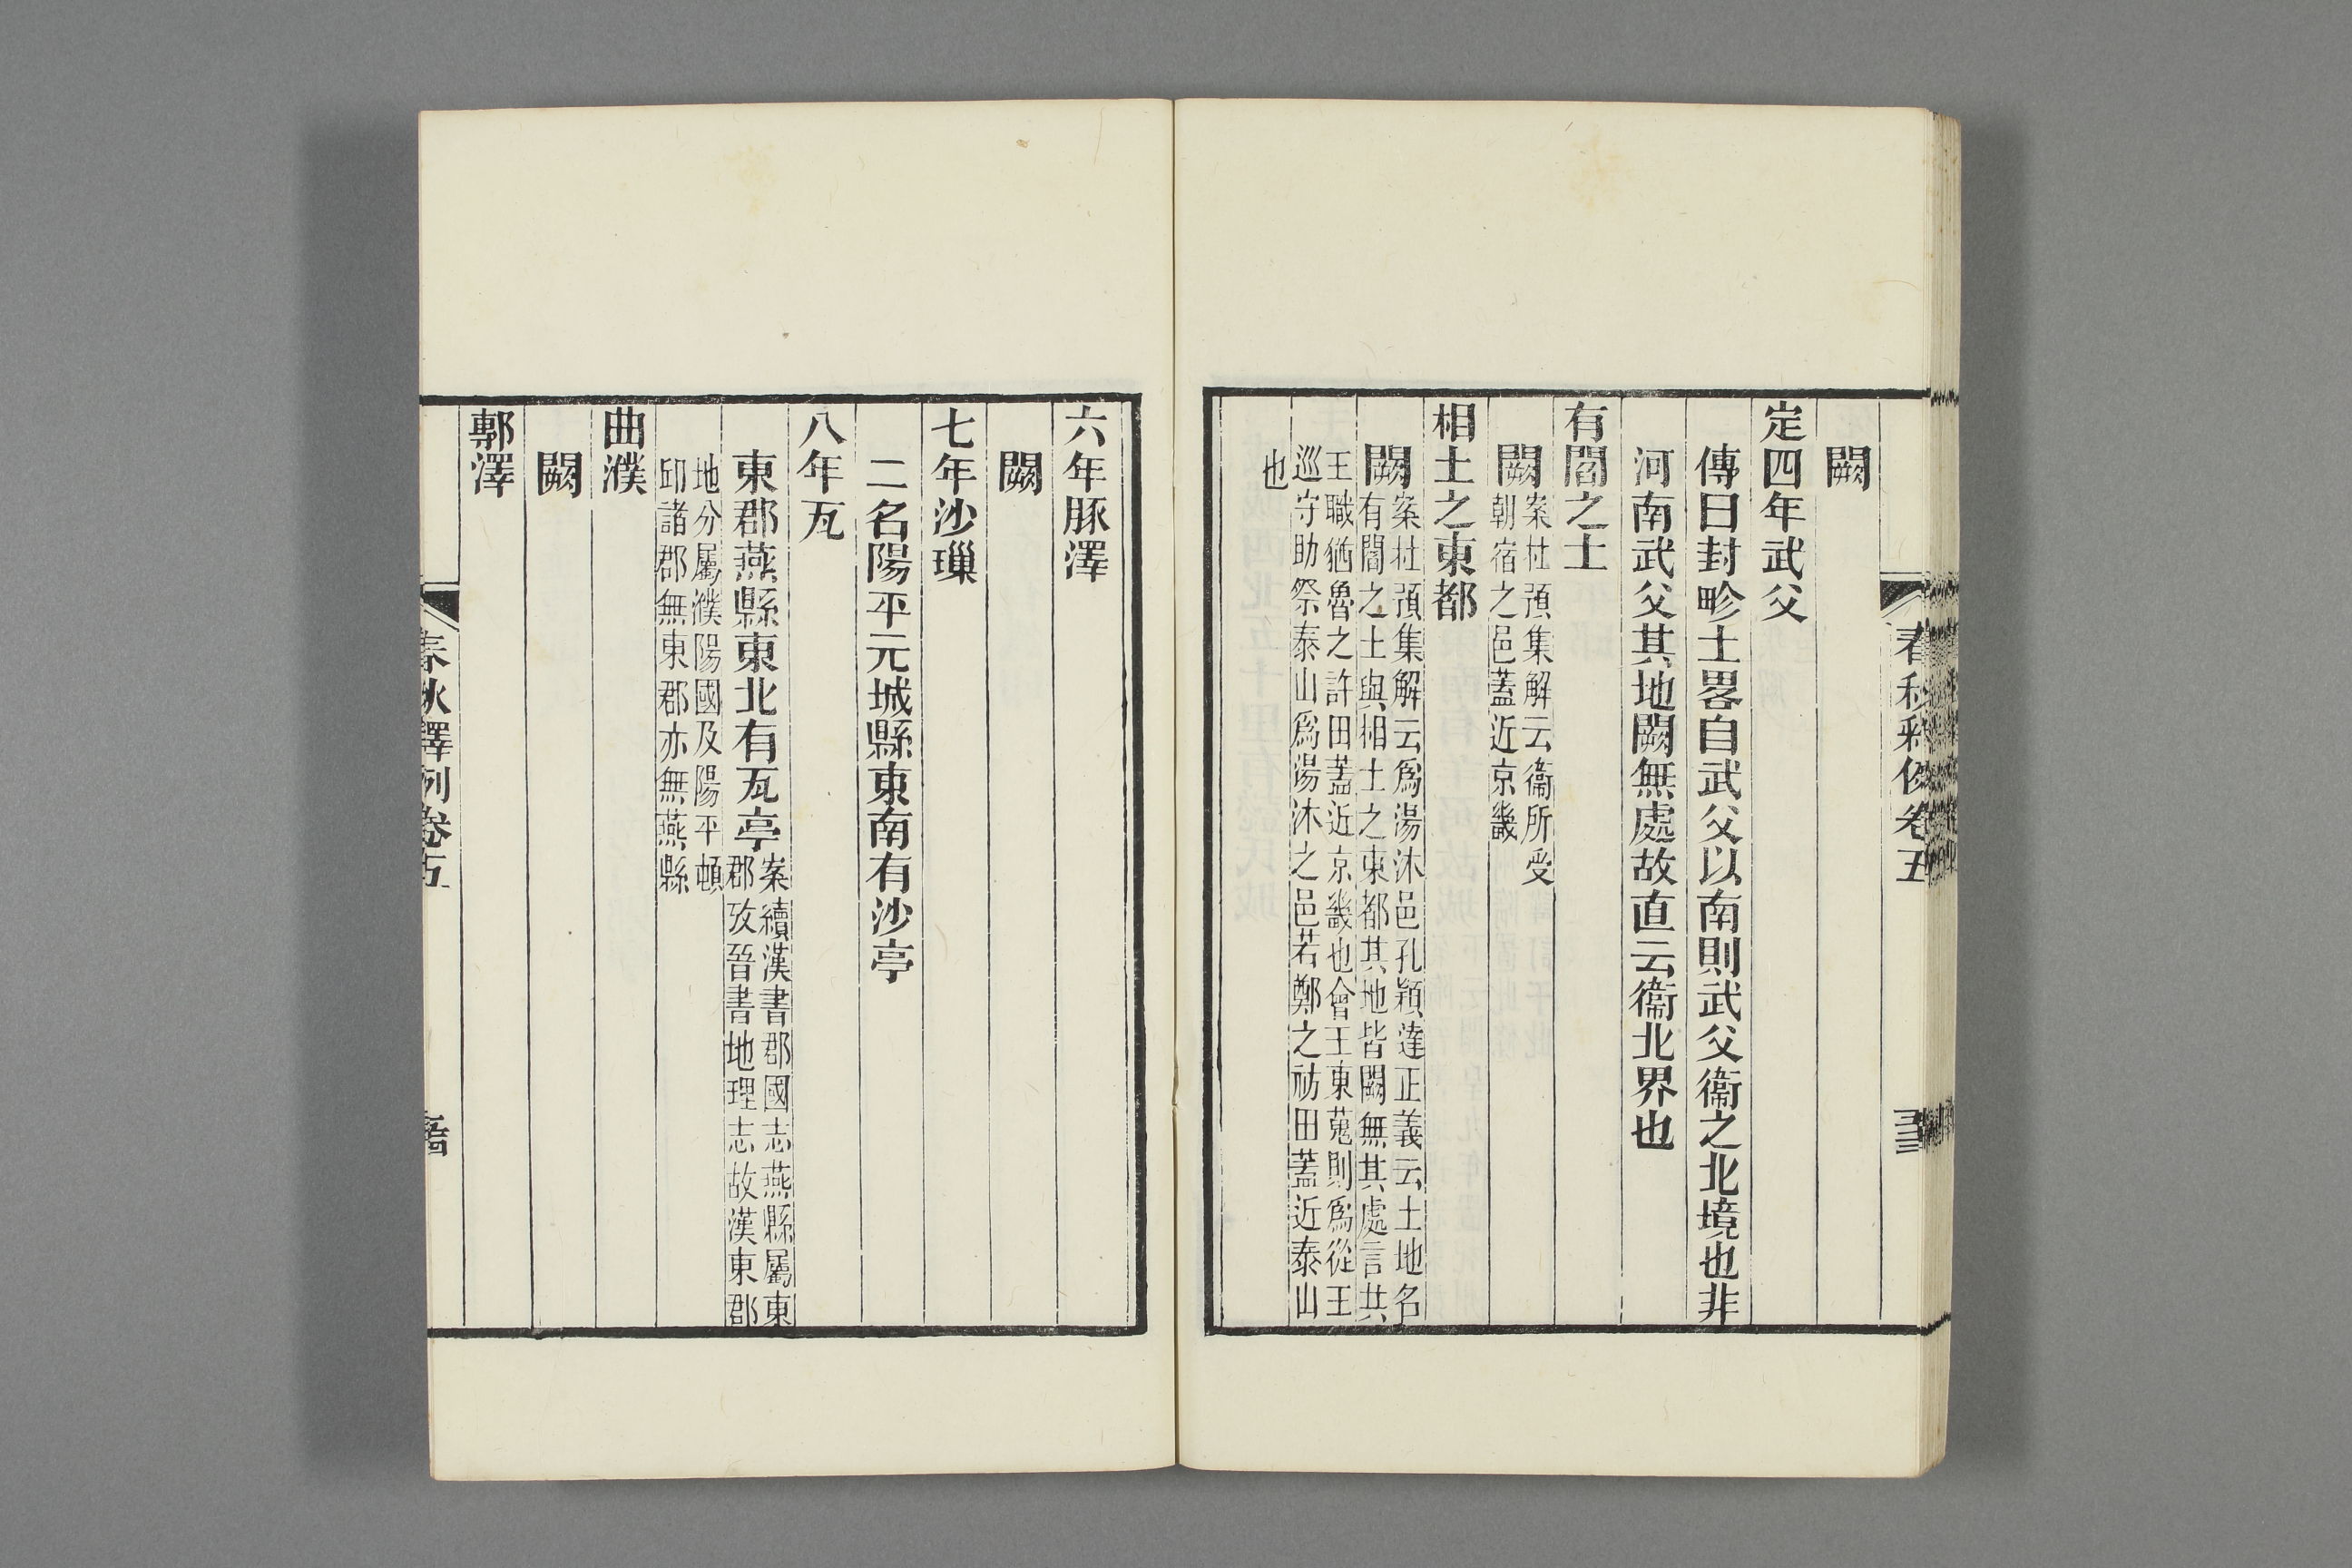 闕
定四年武父
傳曰封畛土畧自武父以南則武父衞之北境也非
河南武父其地闕無處故直云衞北界也
有閻之土
闕案杜預集解云衞所受
朝宿之邑蓋近京畿
相土之東都
闕案杜預集解云爲湯沐邑孔穎達正義云土地名
有閻之土與相土之東都其地皆闕無其處言共
王職猶魯之許田蓋近京畿也會王東蒐則爲從王
巡守助祭泰山爲湯沐之邑若鄭之祊田蓋近泰山
也
春秋釋例卷五
六年豚澤
闕
七年沙璅
二名陽平元城縣東南有沙亭
八年瓦
東郡燕縣東北有瓦亭案續漢書郡國志燕縣屬東
郡攷晉書地理志故漢東郡
地分屬濮陽國及陽平頓
邱諸郡無東郡亦無燕縣
曲濮
闕
鄟澤
春秋釋例卷五